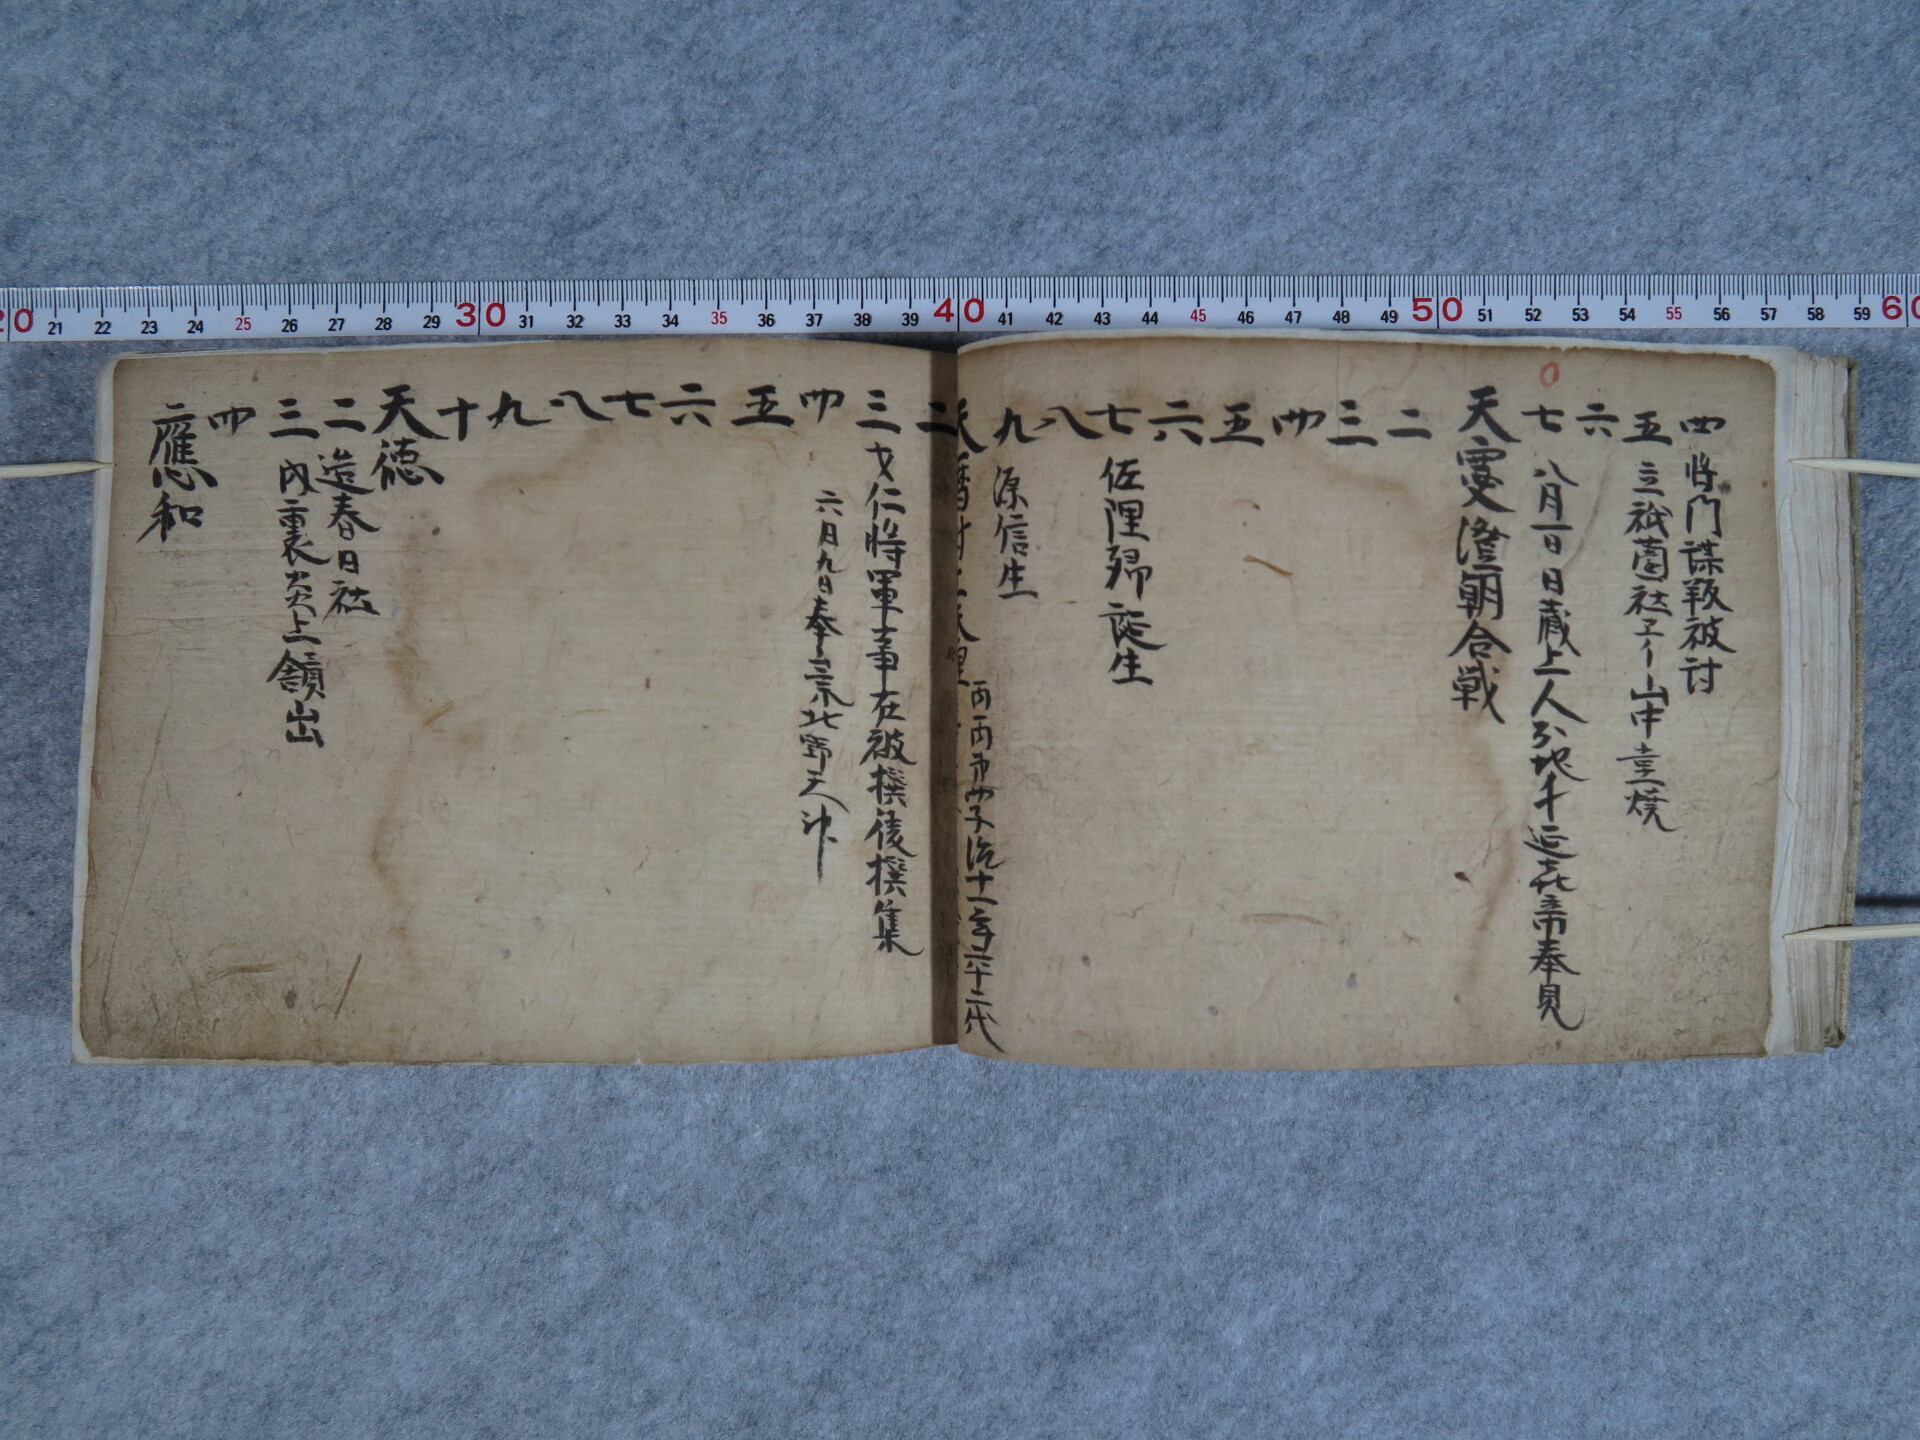 四 将門謀叛被討
五 立祇薗社 山中堂焼
六
七 八月一日日蔵上人 延喜帝奉見
天慶 澄朝合戦
二
三
四
五
六
七 佐理卿誕生
八
九 源信生
天暦 村上天皇 治十一年六十二代
二
三 文仁将軍章在被撰後撰集
四 六月九日奉崇北野天神
五
六
七
八
九
十
天徳
二 造春日社
三 内裏炎上額出
四
應和
20 21 22 23 24 25 26 27 28 29 30 31 32 33 34 35 36 37 38 39 40 41 42 43 44 45 46 47 48 49 50 51 52 53 54 55 56 57 58 59 60